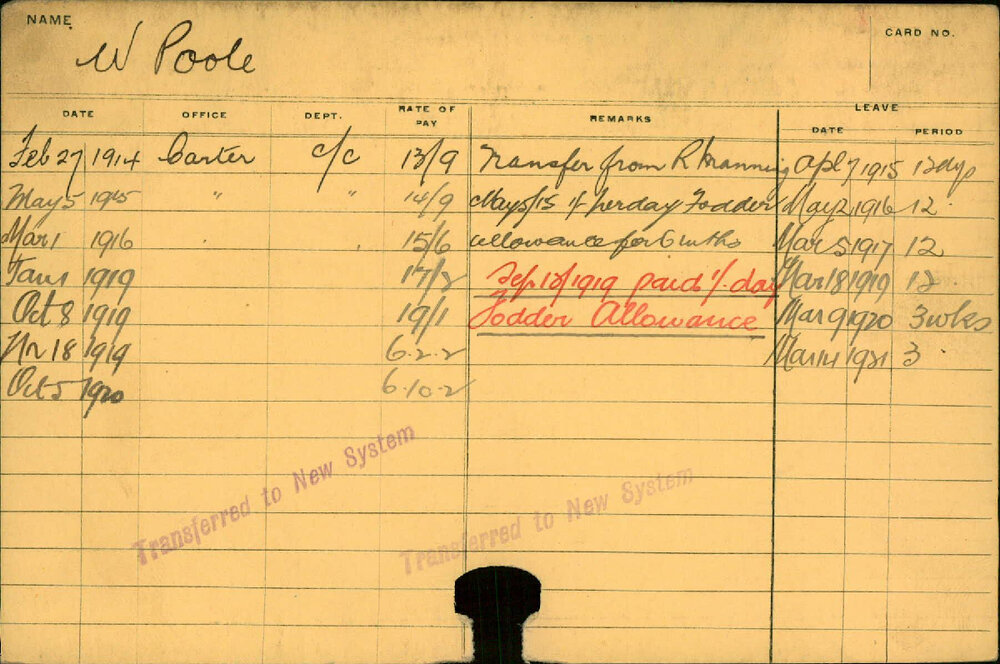 NAME
W Poole
CARD NO.
DATE OFFICE DEPT. RATE OF PAY REMARKS LEAVE DATE PERIOD
Feb 27 1914 Carter c/c 13/9 Transfer from R Manning Apl 7 1915 12 dys
May 5 1915 " " 14/9 May 5/15 1/ perday Fodder May 2 1916 12
Mar 1 1916 15/6 allowance for 6 mths Mar 5 1917 12
Jan 1 1919 17/2 Sep 18/1919 paid 1/- day Mar 18 1919 12
Oct 8 1919 19/1 Fodder Allowance Mar 9 1920 3 wks
Nr 18 1919 6.2.2 Mar 14 1921 3
Oct 5 1920 6.10.2
Transferred to New System
Transferred to New System